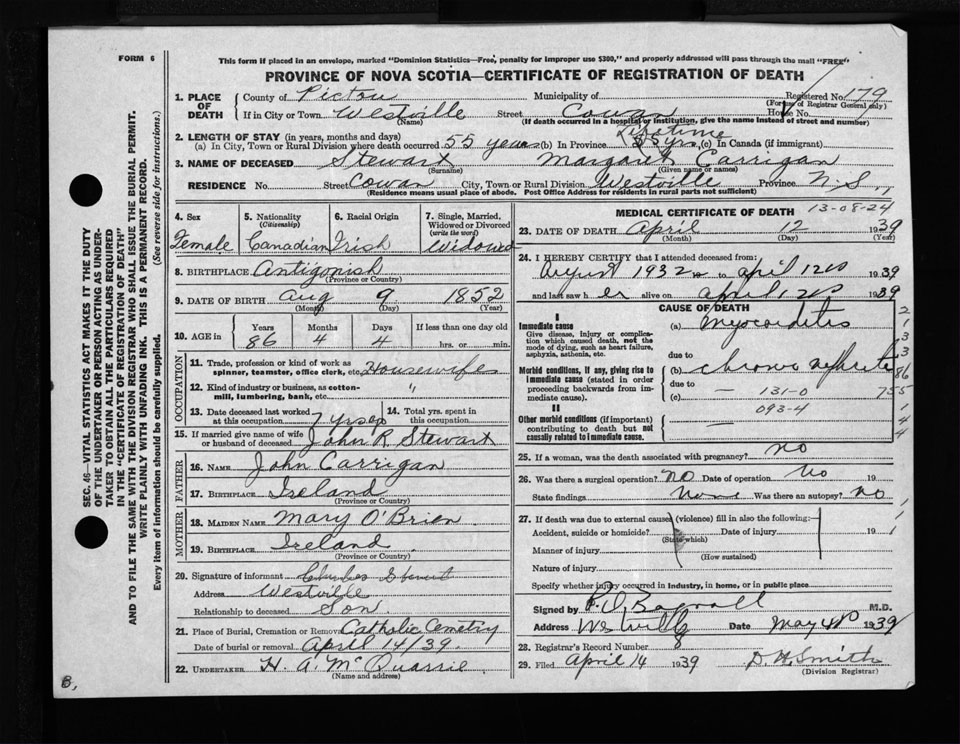 FORM 6
This form if placed in an envelope, marked "Dominion Statistics—Free, penalty for improper use $300," and properly addressed will pass through the mail "FREE"
PROVINCE OF NOVA SCOTIA—CERTIFICATE OF REGISTRATION OF DEATH
SEC. 46—VITAL STATISTICS ACT MAKES IT THE DUTY
OF THE UNDERTAKER OR PERSON ACTING AS UNDER-
TAKER TO OBTAIN ALL THE PARTICULARS REQUIRED
IN THE "CERTIFICATE OF REGISTRATION OF DEATH"
AND TO FILE THE SAME WITH THE DIVISION REGISTRAR WHO SHALL ISSUE THE BURIAL PERMIT.
WRITE PLAINLY WITH UNFADING INK. THIS IS A PERMANENT RECORD.
Every item of information should be carefully supplied. (See reverse side for instructions.)
1. PLACE OF DEATH
County of Pictou Municipality of Registered No. 179
(For use of Registrar General only)
If in City or Town Westville Street Cowan House No.
(Name) (If death occurred in a hospital or institution, give the name instead of street and number)
2. LENGTH OF STAY (in years, months and days) Lifetime
(a) In City, Town or Rural Division where death occurred 55 years (b) In Province (c) In Canada (if immigrant)
3. NAME OF DECEASED Stewart Margaret Carrigan
(Surname) (Given name or names)
RESIDENCE No. Street Cowan City, Town or Rural Division Westville Province N.S.
(Residence means usual place of abode. Post Office Address for residents in rural parts not sufficient)
4. Sex
Female
5. Nationality
(Citizenship)
Canadian
6. Racial Origin
Irish
7. Single, Married,
Widowed or Divorced
(write the word)
Widowed
8. BIRTHPLACE Antigonish
(Province or Country)
9. DATE OF BIRTH Aug 9 1852
(Month) (Day) (Year)
10. AGE in
Years Months Days If less than one day old
86 4 4 hrs. or min.
OCCUPATION
11. Trade, profession or kind of work as
spinner, teamster, office clerk, etc. Housewife
12. Kind of industry or business, as cotton-
mill, lumbering, bank, etc. "
13. Date deceased last worked
at this occupation 7 yrs ago
14. Total yrs. spent in
this occupation
15. If married give name of wife
or husband of deceased John R. Stewart
FATHER
16. NAME John Carrigan
17. BIRTHPLACE Ireland
(Province or Country)
MOTHER
18. MAIDEN NAME Mary O'Brien
19. BIRTHPLACE Ireland
(Province or Country)
20. Signature of informant Charles Stewart
Address Westville
Relationship to deceased Son
21. Place of Burial, Cremation or Removal Catholic Cemetry
Date of burial or removal April 14/39.
22. UNDERTAKER H. A. McQuarrie
(Name and address)
MEDICAL CERTIFICATE OF DEATH 13-08-24
23. DATE OF DEATH April 12 1939
(Month) (Day) (Year)
24. I HEREBY CERTIFY that I attended deceased from:
August 1932 to April 12 1939
and last saw her alive on April 12 1939
CAUSE OF DEATH
I
Immediate cause (a) Myocarditis
Give disease, injury or complica-
tion which caused death, not the
mode of dying, such as heart failure,
asphyxia, asthenia, etc.
due to
Morbid conditions, if any, giving rise to
immediate cause (stated in order
proceeding backwards from im-
mediate cause).
(b) chronic nephritis
due to
(c) 131-0
093-4
II
Other morbid conditions (if important)
contributing to death but not
causally related to immediate cause.
25. If a woman, was the death associated with pregnancy? no
26. Was there a surgical operation? NO Date of operation No
State findings None Was there an autopsy? no
27. If death was due to external causes (violence) fill in also the following:
Accident, suicide or homicide? Date of injury 19
(State which)
Manner of injury
(How sustained)
Nature of injury
Specify whether injury occurred in industry, in home, or in public place
Signed by Bagnall M.D.
Address Westville Date May 1939
28. Registrar's Record Number 8
29. Filed April 14 1939 D. H. Smith
(Division Registrar)
B,